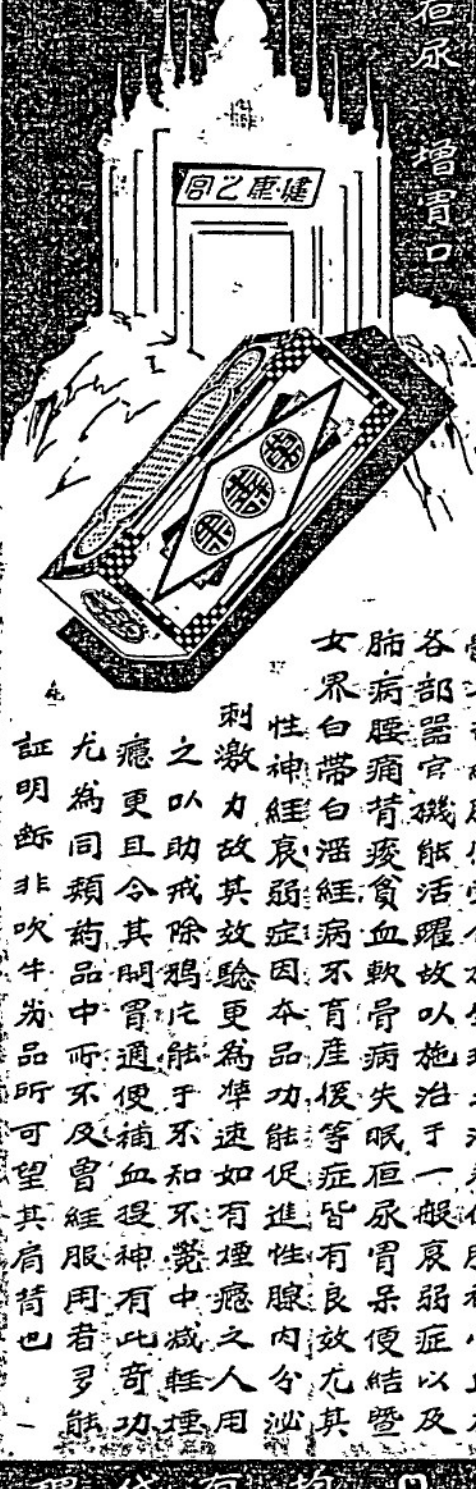 尿
增胃口
健康之宮
各部器官機能活躍故以施治于一般衰弱症以及
肺病腰痛背痠貧血軟骨病失眠洹尿胃呆便結暨
女界白帶白淫經病不育產後等症皆有良效尤其
性神經衰弱症因本品功能促進性腺內分泌
刺激力故其效驗更為準速如有煙癮之人用
之以助戒除鴉片能于不知不覺中減輕煙
癮更且令其開胃通便補血提神有此奇功
尤為同類葯品中所不及曾經服用者多能
証明斷非吹牛劣品所可望其肩背也